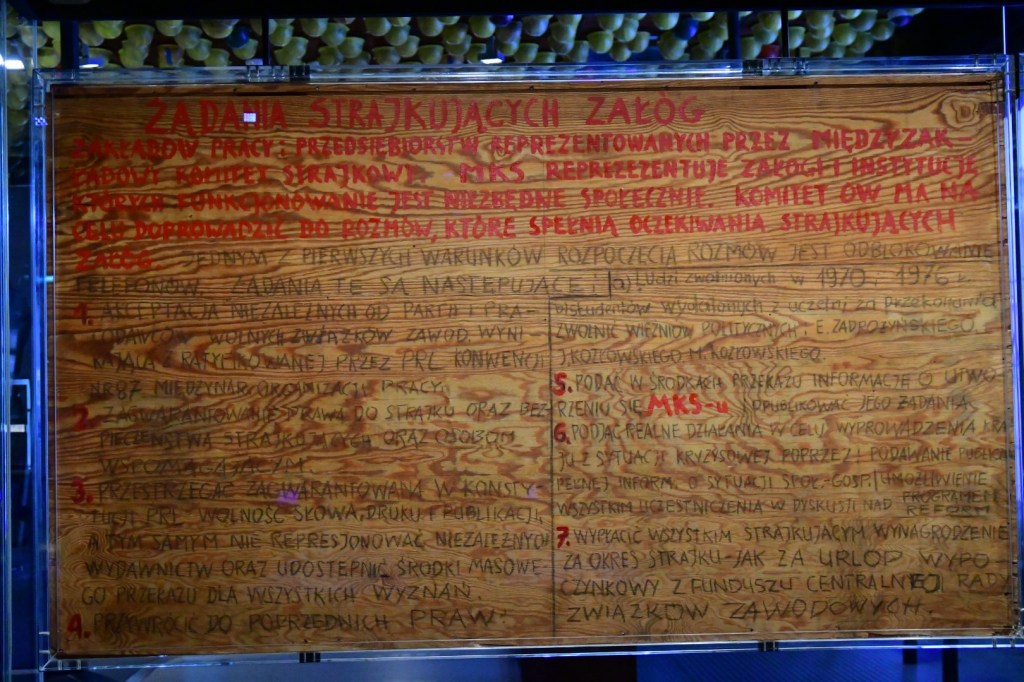 ŻĄDANIA STRAJKUJĄCYCH ZAŁÓG
ZAKŁADÓW PRACY I PRZEDSIĘBIORSTW REPREZENTOWANYCH PRZEZ MIĘDZYZAK-
ŁADOWY KOMITET STRAJKOWY. MKS REPREZEZENTUJE ZAŁOGI I INSTYTUCJE
KTÓRYCH FUNKCJONOWANIE JEST NIEZBĘDNE SPOŁECZNIE. KOMITET ÓW MA NA
CELU DOPROWADZIĆ DO ROZMÓW, KTÓRE SPEŁNIĄ OCZEKIWANIA STRAJKUJĄCYCH
ZAŁÓG JEDNYM Z PIERWSZYCH WARUNKÓW ROZPOCZĘCIA ROZMÓW JEST ODBLOKOWANIE
TELEFONÓW. ŻĄDANIA TE SĄ NASTĘPUJĄCE:
1. AKCEPTACJA NIEZALEŻNYCH OD PARTII I PRA-
CODAWCÓW WOLNYCH ZWIĄZKÓW ZAWOD. WYNI-
KAJĄCA Z RATYFIKOWANEJ PRZEZ PRL KONWENCJI
NR 87 MIĘDZYNAR. ORGANIZACJI PRACY.
2. ZAGWARANTOWANIE PRAWA DO STRAJKU ORAZ BEZ-
PIECZEŃSTWA STRAJKUJĄCYCH ORAZ OSOBOM
WSPOMAGAJĄCYM.
3. PRZESTRZEGAĆ ZAGWARANTOWANĄ W KONSTY-
TUCJI PRL WOLNOŚĆ SŁOWA, DRUKU I PUBLIKACJI,
A TYM SAMYM NIE REPRESJONOWAĆ NIEZALEŻNYCH
WYDAWNICTW ORAZ UDOSTĘPNIĆ ŚRODKI MASOWE-
GO PRZEKAZU DLA WSZYSTKICH WYZNAŃ.
4. PRZYWRÓCIĆ DO POPRZEDNICH PRAW:
a) Ludzi zwolnionych w 1970, 1976 r.
b) studentów wydalonych z uczelni za przekonania
ZWOLNIĆ WIĘŹNIÓW POLITYCZNYCH: E. ZADROŻYŃSKIEGO,
J. KOZŁOWSKIEGO, M. KOZŁOWSKIEGO.
5. PODAĆ W ŚRODKACH PRZEKAZU INFORMACJE O UTWO-
RZENIU SIĘ MKS-u I OPUBLIKOWAĆ JEGO ŻĄDANIA
6. PODJĄĆ REALNE DZIAŁANIA W CELU WYPROWADZENIA KRA-
JU Z SYTUACJI KRYZYSOWEJ POPRZEZ: PODAWANIE PUBLICZN.
PEŁNEJ INFORM. O SYTUACJI SPOŁ-GOSP. UMOŻLIWIENIE
WSZYSTKIM UCZESTNICZENIA W DYSKUSJI NAD PROGRAMEM
REFORM
7. WYPŁACIĆ WSZYSTKIM STRAJKUJĄCYM WYNAGRODZENIE
ZA OKRES STRAJKU-JAK ZA URLOP WYPO
CZYNKOWY Z FUNDUSZU CENTRALNEJ RADY
ZWIĄZKÓW ZAWODOWYCH.